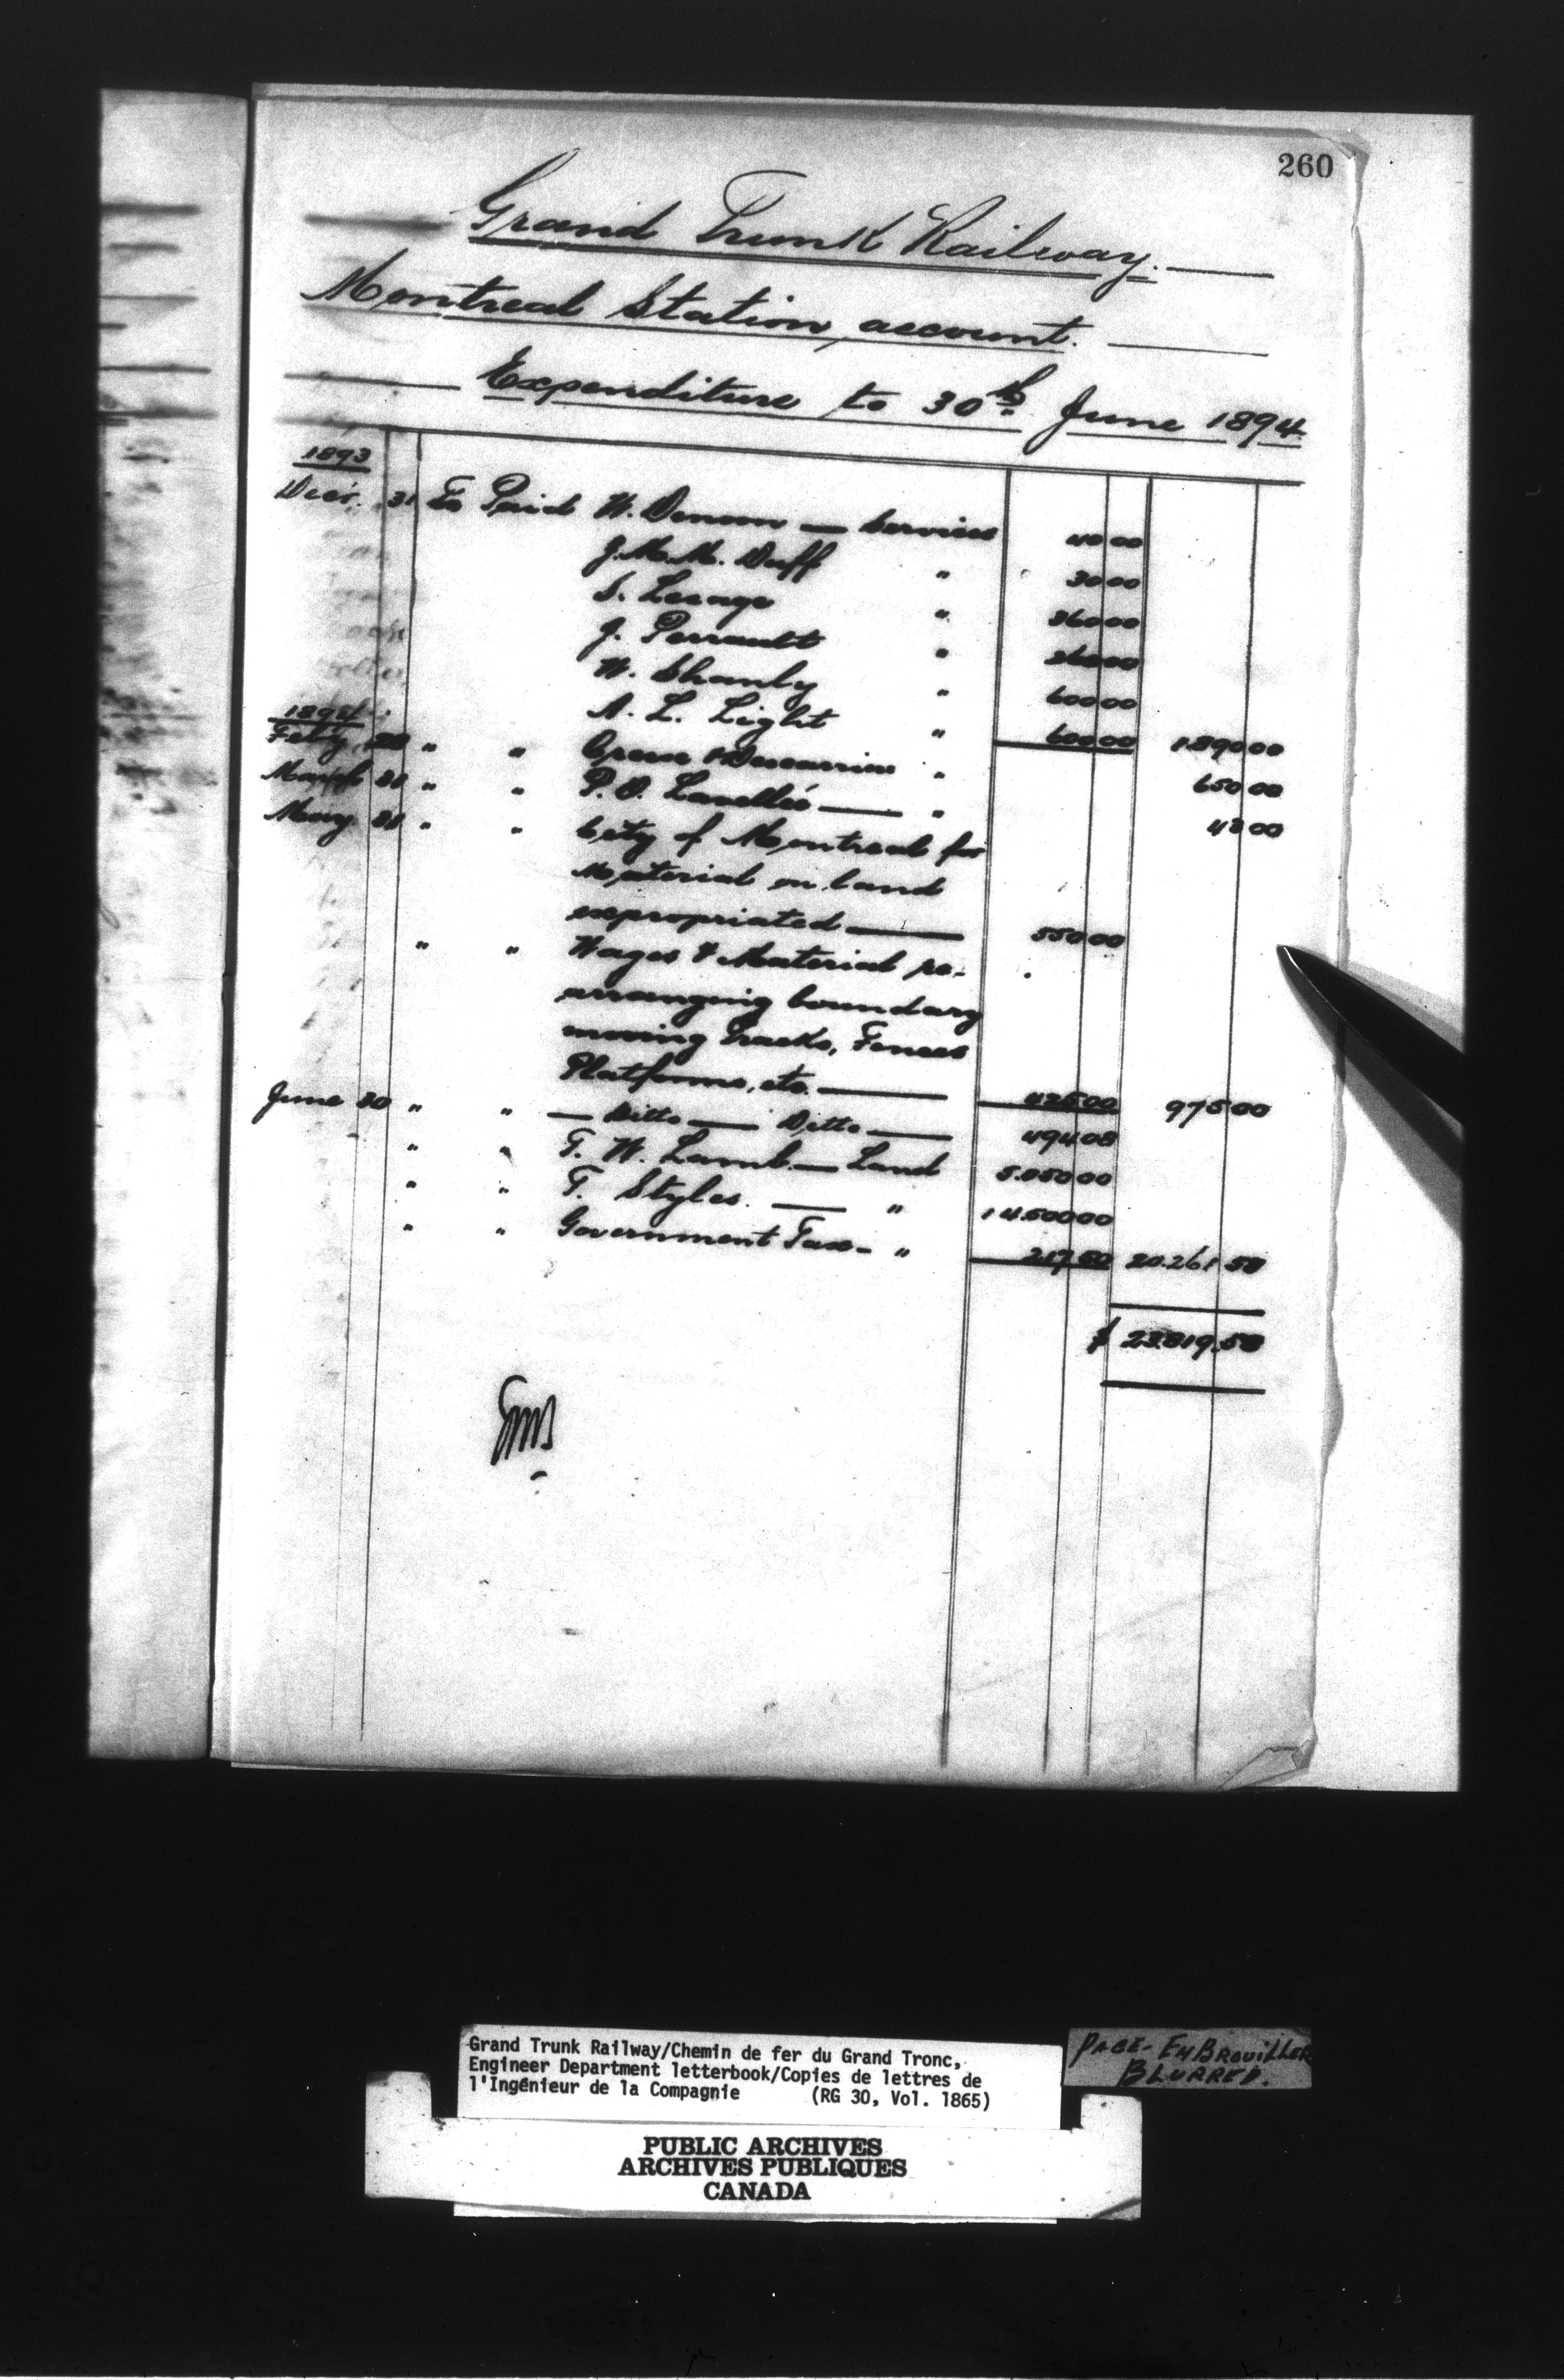 260
Grand Trunk Railway.
Montreal Station account.
Expenditure to 30th June 1894
1893
Decr. 31 To Paid W. Denoon — Services 40 00
J.M.M. Duff " 30 00
S. Lesage " 360 00
J. Perrault " 260 00
W. Shanly " 600 00
A. L. Light " 600 00 1.890 00
1894
Feby 28 " " " 650 00
March 31 " " P. O. Lavallée — " 43 00
May 31 " " City of Montreal for
Material on land
expropriated — 550 00
" " Wages & Material re-
arranging boundary
moving tracks, Fences
Platforms, etc. — 425 00 975 00
June 30 " " — Ditto — Ditto — 494 08
" " T. W. Lamb — Land 5.050 00
" " T. Styles. — " 14.500 00
" " Government Tax - " 217 50 20.261 58
$ 23.819.58
Grand Trunk Railway/Chemin de fer du Grand Tronc,
Engineer Department letterbook/Copies de lettres de
l'Ingénieur de la Compagnie (RG 30, Vol. 1865)
PAGE - EMBROUILLER
BLURRED.
PUBLIC ARCHIVES
ARCHIVES PUBLIQUES
CANADA